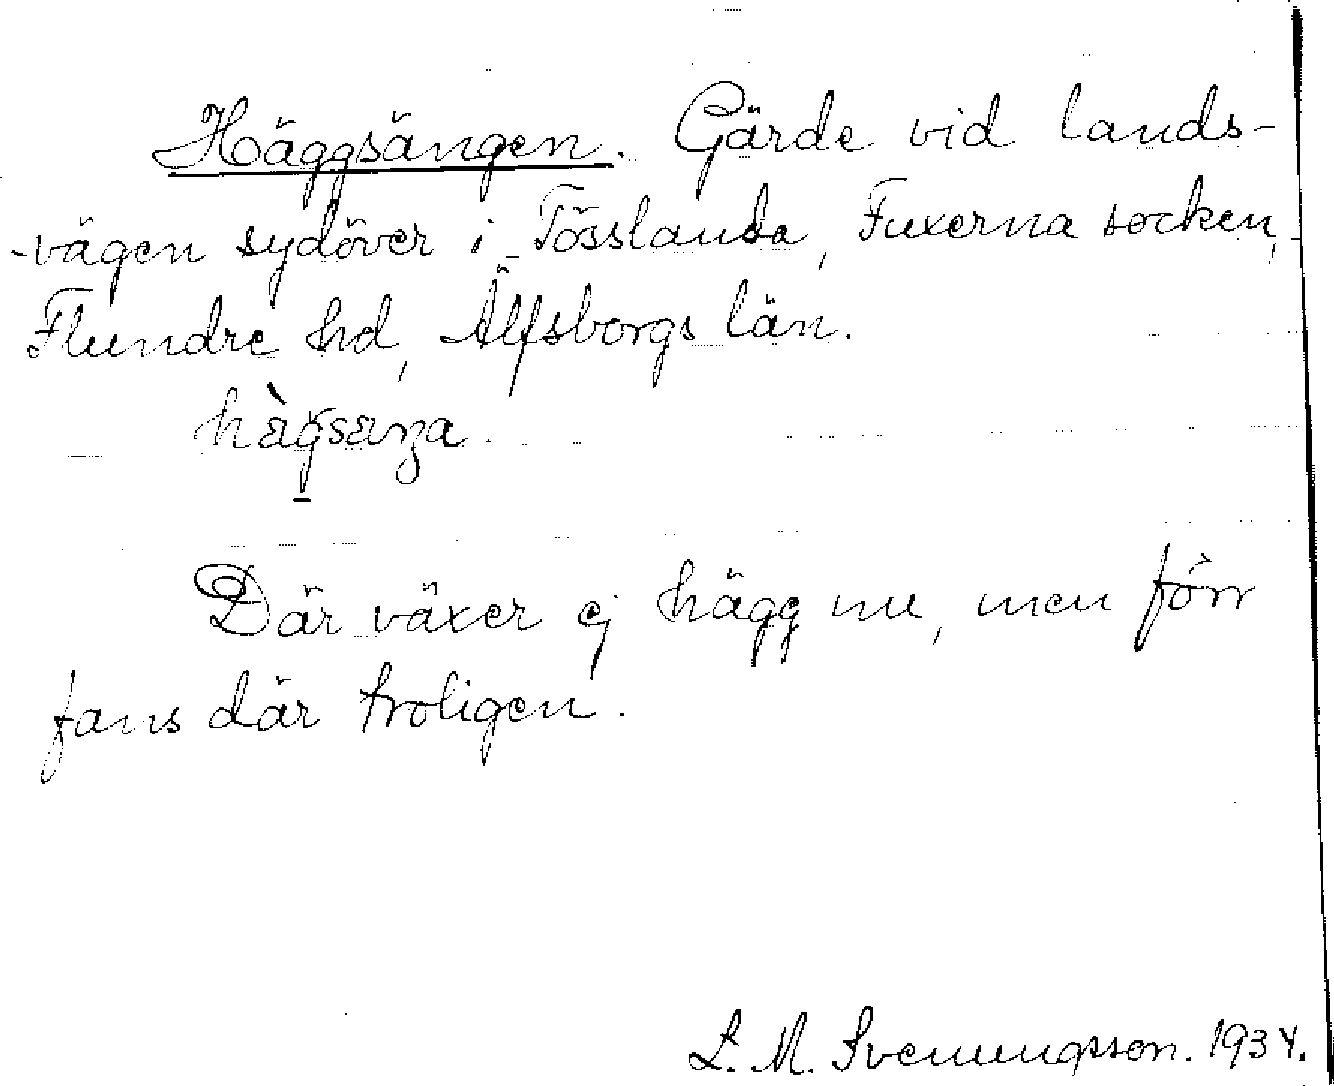 Häggsängen. Gärde vid lands-
-vägen sydöver i Tösslanda, Fuxerna socken,
Flundre hd, Älfsborgs län.
hàgsæŋa
Där växer ej hägg nu, men förr
fans där troligen.
L. M. Svenungsson. 1934.